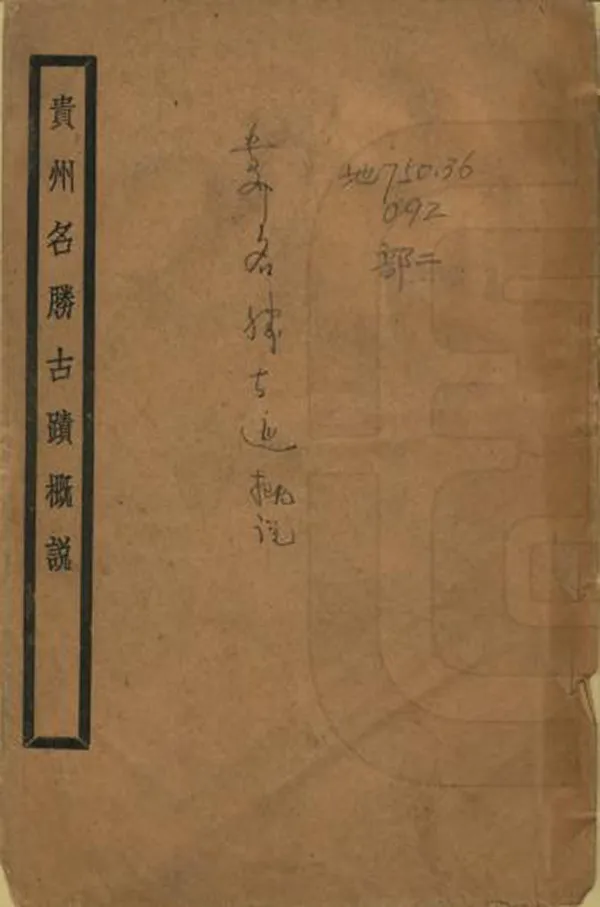 地750.36
092
部二
贵州名胜古迹概说
貴州名勝古蹟概説